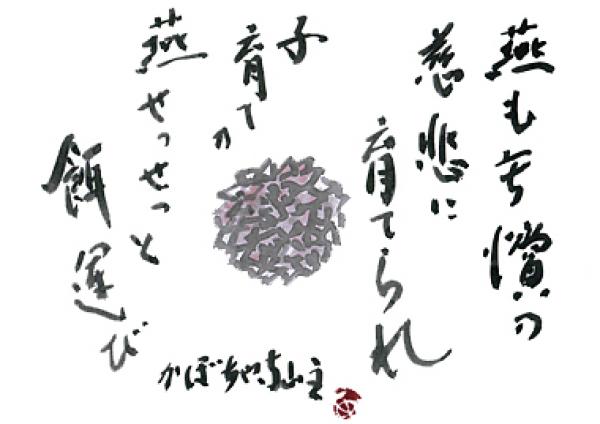 燕も無償の
慈悲に
育てられ
子育ての
燕せっせっと
餌運び
かぼちゃ寺山主